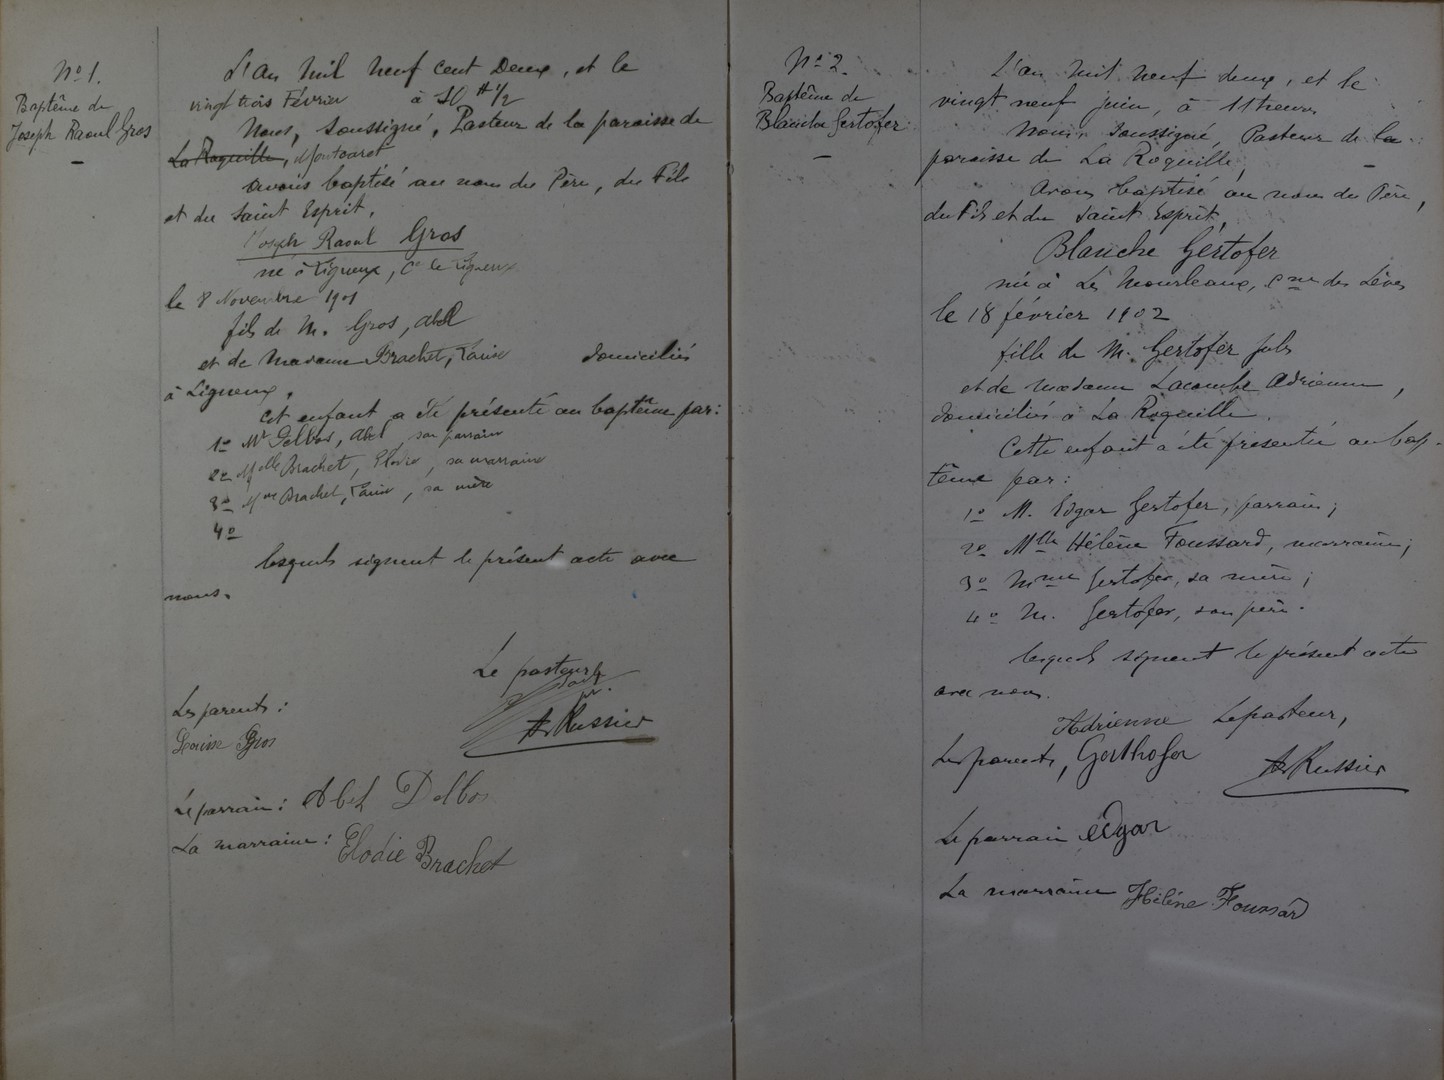 No 1.
Baptême de
Joseph Raoul Gros
L'an Mil neuf cent Deux, et le
vingt trois Février à 10 H 1/2
Nous, soussigné, Pasteur de la paroisse de
La Roquille, Montcaret
avons baptisé au nom du Père, du Fils
et du Saint Esprit,
Joseph Raoul Gros
né à Ligueux, Cne de Ligueux
le 8 Novembre 1901
fils de M. Gros, Abel
et de Madame Brachet, Louise domiciliés
à Ligueux.
Cet enfant a été présenté au baptême par:
1o Mr Delbos, Abel, son parrain
2o Melle Brachet, Elodie, sa marraine
3o Mme Brachet, Louise, sa mère
4o
lesquels signent le présent acte avec
nous.
Le pasteur
Les parents:
Louise Gros
A. Russier
Le parrain: Abel Delbos
La marraine: Elodie Brachet
No 2.
Baptême de
Blanche Gertofer
L'an mil neuf deux, et le
vingt neuf juin, à 11 heures
Nous, soussigné, Pasteur de la
paroisse de La Roquille,
Avons baptisé au nom du Père,
du Fils et du Saint Esprit,
Blanche Gertofer
née à Les Mourleaux, cne des Lèves
le 18 février 1902
fille de M. Gertofer
et de madame Lacombe Adrienne,
domiciliés à La Roquille.
Cette enfant a été présentée au bap-
tême par:
1o M. Edgar Gertofer, parrain;
2o Mlle Hélène Foussard, marraine;
3o Mme Gertofer, sa mère;
4o M. Gertofer, son père.
lesquels signent le présent acte
avec nous.
Adrienne Le pasteur,
Les parents, Gerthofer
A. Russier
Le parrain edgar
La marraine Hélène Foussard